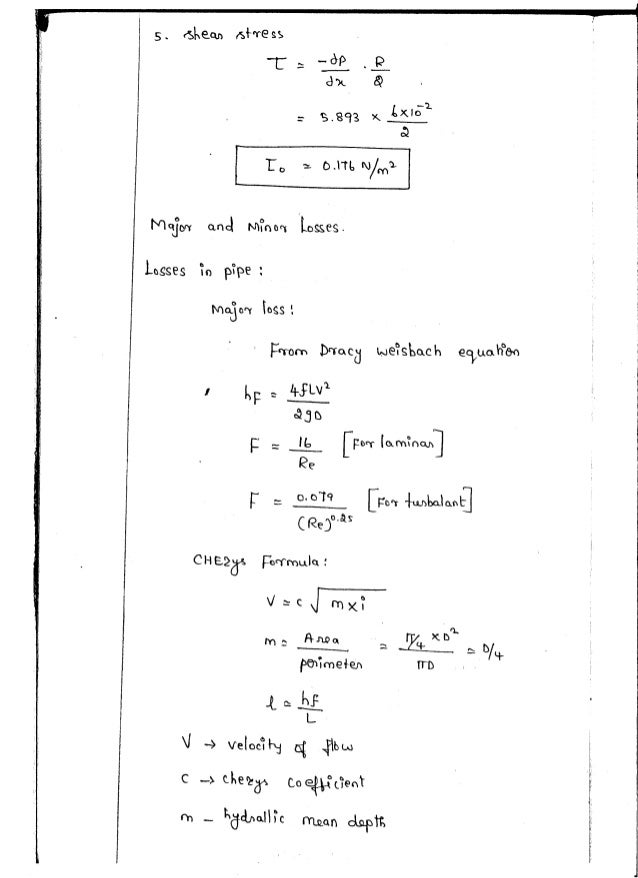 5. Shear stress
τ = -dp/dx . R/2
= 5.893 × 6×10^-2/2
τ0 = 0.176 N/m²
Major and Minor Losses.
Losses in pipe :
Major loss :
From Dracy weisbach equation
hF = 4fLV²/2gD
F = 16/Re [For laminar]
F = 0.079/(Re)^0.25 [For turbalant]
CHEZys Formula :
V = c √m×i
m = Area/perimeter = π/4 × D²/πD = D/4
i = hf/L
V → velocity of flow
C → chezys coefficient
m - hydrallic mean depth